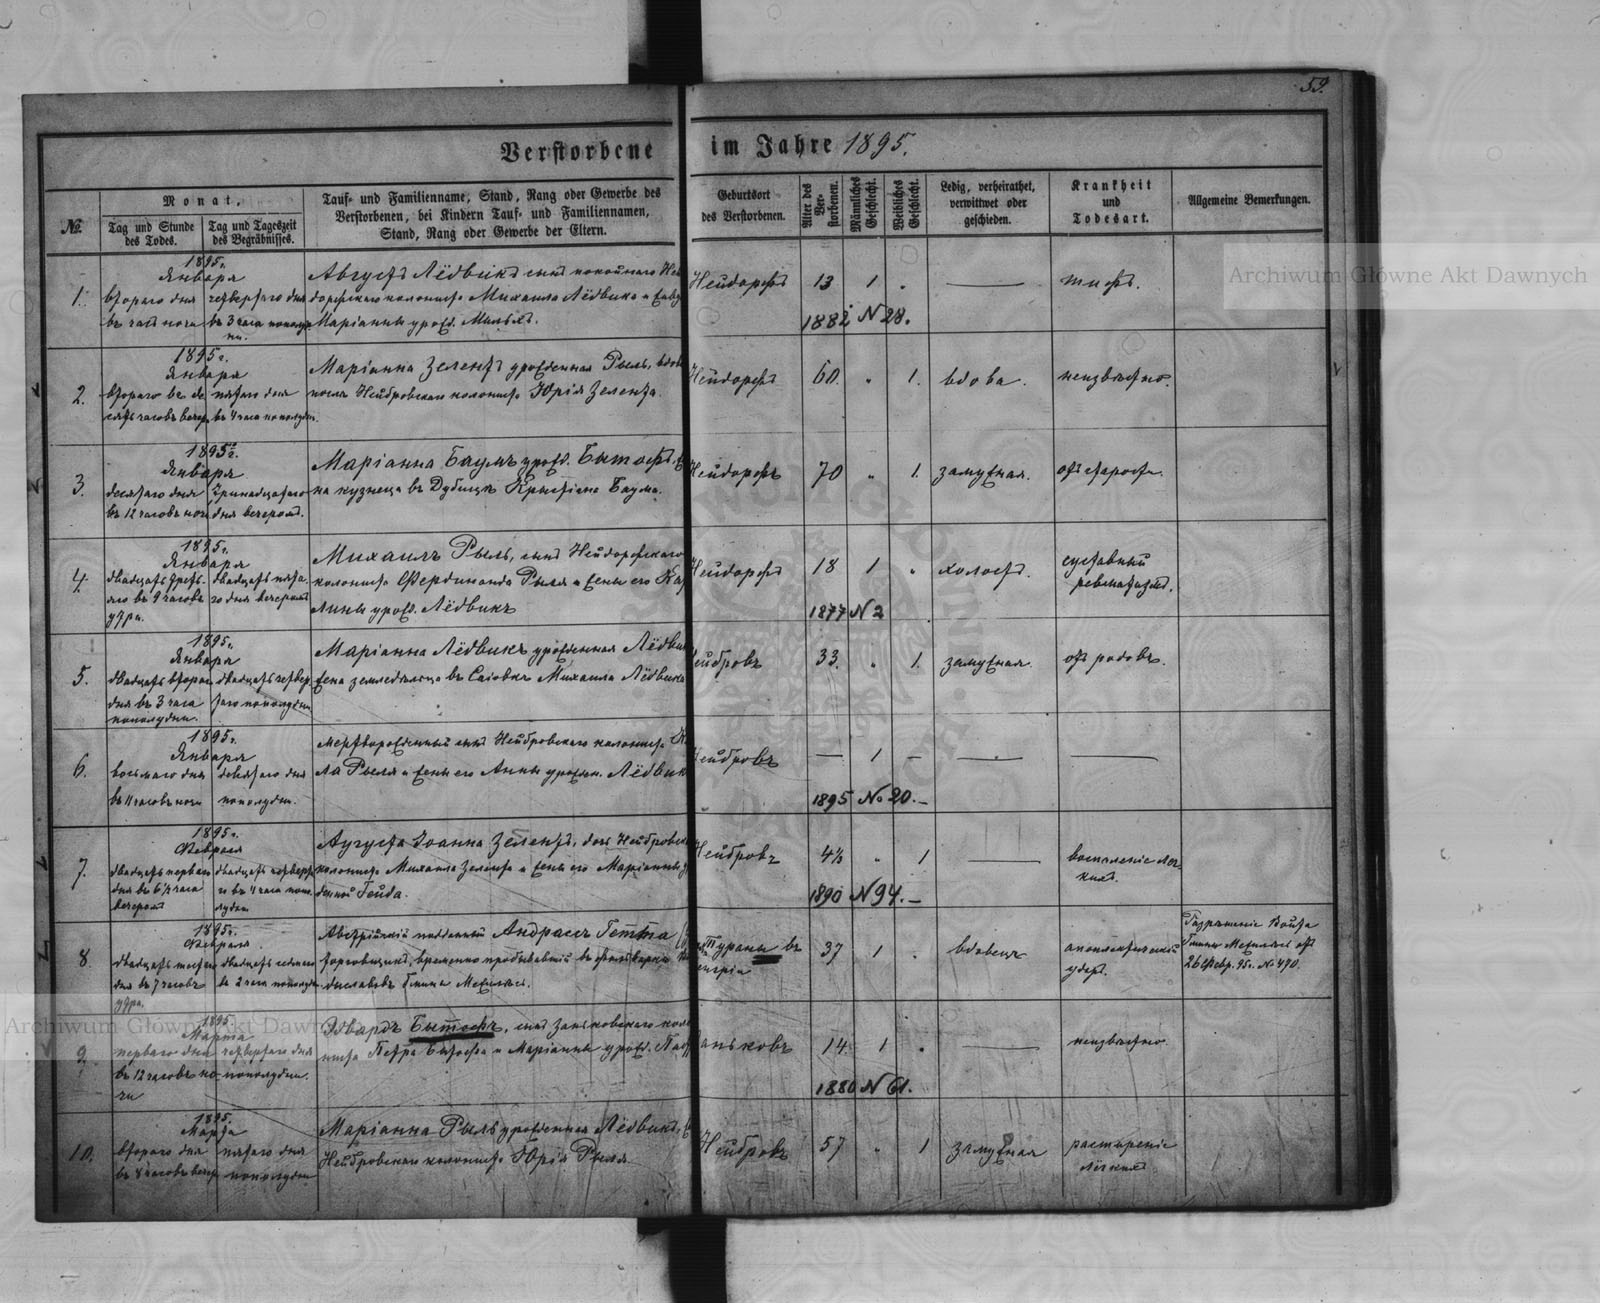 59.
Verstorbene im Jahre 1895.
№
Monat,
Tag und Stunde des Todes.
Tag und Tageszeit des Begräbnisses.
Tauf- und Familienname, Stand, Rang oder Gewerbe des
Verstorbenen, bei Kindern Tauf- und Familiennamen,
Stand, Rang oder Gewerbe der Eltern.
Geburtsort
des Verstorbenen.
Alter des Ver-
storbenen.
Männliches
Geschlecht.
Weibliches
Geschlecht.
Ledig, verheirathet,
verwittwet oder
geschieden.
Krankheit
und
Todesart.
Allgemeine Bemerkungen.
1.
1895 г.
Января
втораго дня
въ часъ ночи
четвертаго дня
въ 3 часа пополуд
ни.
Августъ Лёдвикъ сынъ покойнаго Ней
дорфскаго колониста Михаила Лёдвика и
Маріанны урожд.
Нейдорфъ 13 1 — тифъ.
1882 N 28.
2.
1895 г.
Января
втораго въ де
сять часовъ вечер.
пятаго дня
въ 4 часа пополудн.
Маріанна Зелентъ урожденная Рыль, вдова
послѣ Нейбровскаго колониста Юрія Зелента.
Нейдорфъ 60. 1. вдова. неизвѣстно.
3.
1895 г.
Января
десятаго дня
въ 12 часовъ ночи
тринадцатаго
дня вечеромъ.
Маріанна Баумъ урожд. Бытофъ,
на кузнеца въ Крыстіана Баума.
Нейдорфъ 70 1. замужная. отъ старости.
4.
1895 г.
Января
двадцать треть
яго въ 9 часовъ
утра.
двадцать пята
го дня вечеромъ
Михаилъ Рыль, сынъ Нейдорфскаго
колониста Фердинанда Рыля и жены его Ка
лины урожд. Лёдвикъ
Нейдорфъ 18 1 холостъ. суставный
ревматизмъ.
1877 N 2
5.
1895 г.
Января
двадцать втораго
дня въ 3 часа
пополудни.
двадцать четвер
таго пополудни
Маріанна Лёдвикъ урожденная Лёдвик
жена земледѣльца въ Михаила Лёдвика
Нейбровъ 33. 1. замужная. отъ родовъ.
6.
1895 г.
Января
восьмаго дня
въ 11 часовъ ночи
девятаго дня
пополудни.
Мертворожденный сынъ Нейбровскаго колониста
ла Рыля и жены его Анны урожден. Лёдвик
Нейбровъ — 1 — — —
1895 No 20. —
7.
1895 г.
Февраля
двадцать перваго
дня въ 6½ часа
вечеромъ
двадцать четверта
го въ 4 часа попо
лудни
Аугуста Іоанна Зелентъ, дочь Нейбровска
колониста Михаила Зелента и жены его Маріанны
денной Гейда.
Нейбровъ 4½ 1 — воспаленіе лег-
кихъ.
1890 N 94. —
8.
1895 г.
Февраля
двадцать шестаго
дня въ 7 часовъ
утра.
двадцать седьмаго
въ 2 часа пополудн.
Австрійскій подданный Андрасъ Гетта
торговщикъ, временно пребывавшій въ
диславовъ гмины
Тураны въ
37 1 вдовецъ апоплектическій
ударъ.
Разрѣшеніе Войта
Гмины отъ
26 Февр. 95 г. No 470.
9.
1895
Марта
перваго дня
въ 12 часовъ но
чи
четвертаго дня
пополудни.
Эдвардъ Бытофъ, сынъ Заньковскаго коло
ниста Петра Бытофа и Маріанны урожд.
аньковъ 14. 1 — неизвѣстно
1880 N 61.
10.
1895
Марта
втораго дня
въ 8 часовъ вечер.
пятаго дня
пополудни
Маріанна Рыль урожденная Лёдвикъ,
Нейбровскаго колониста Юрія Рыля
Нейбровъ 57 1 замужная расширеніе
лёгкихъ
Archiwum Główne Akt Dawnych
Archiwum Główne Akt Dawnych